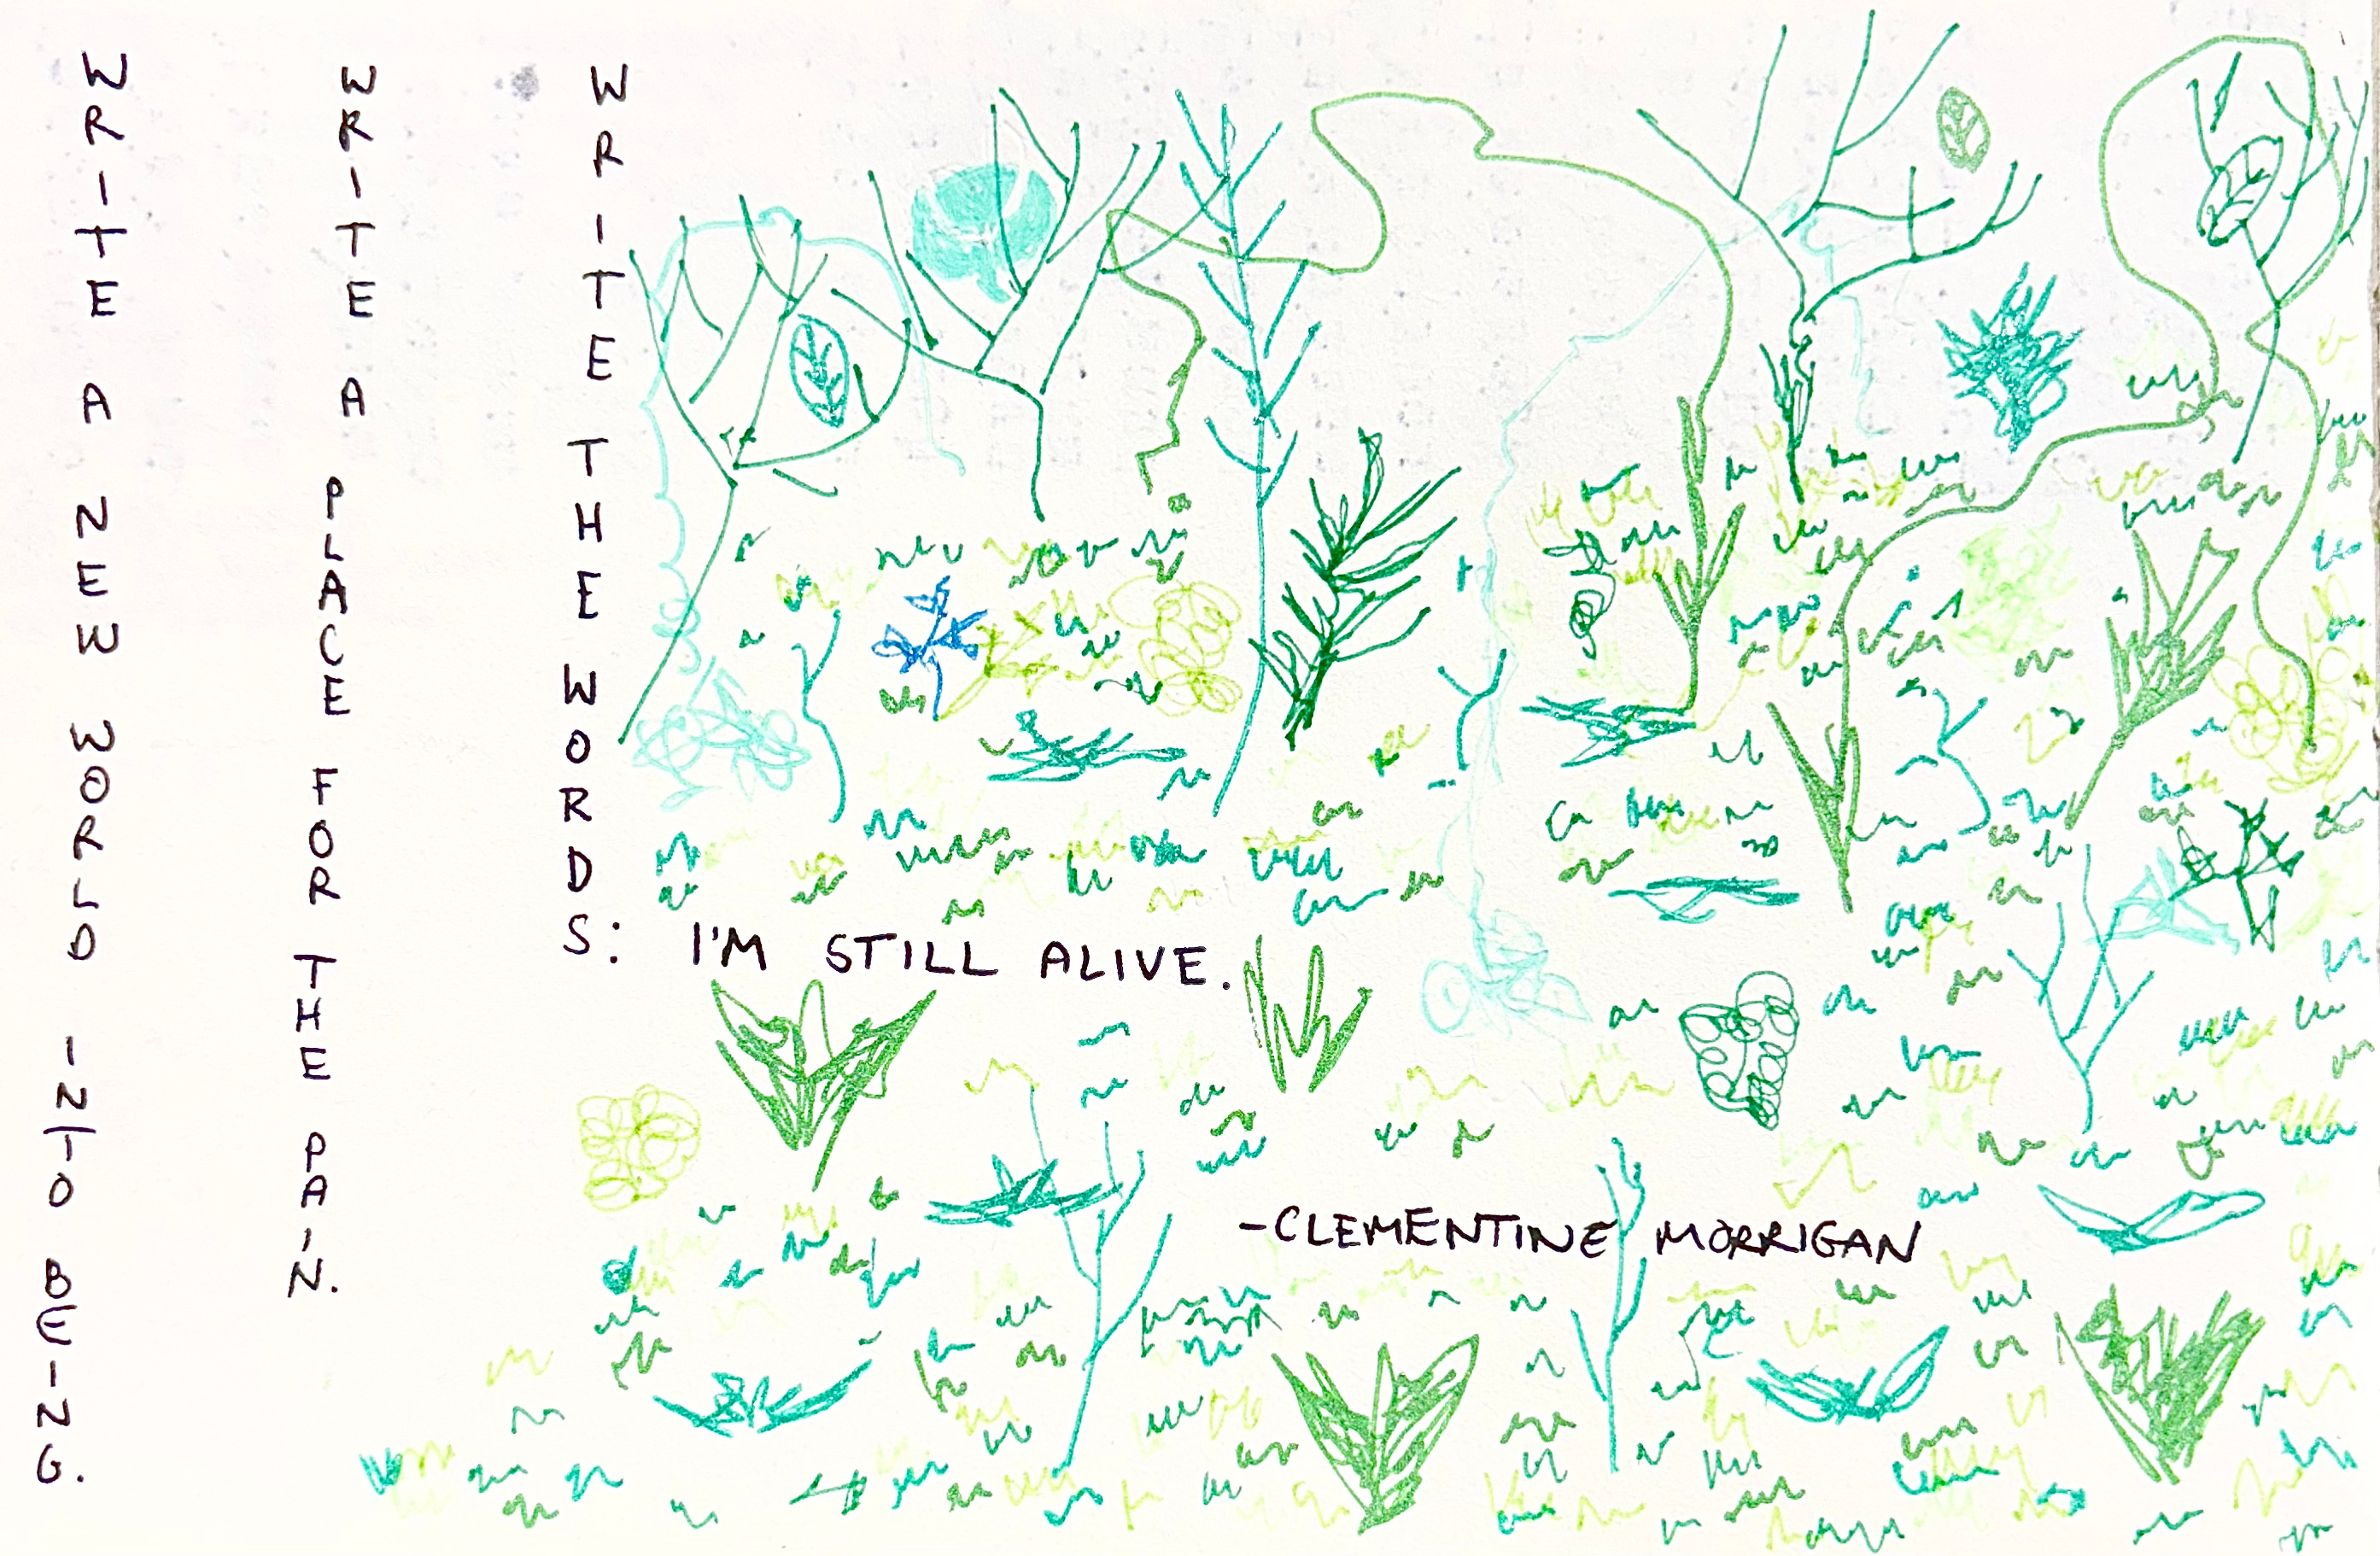 WRITE A NEW WORLD INTO BEING.
WRITE A PLACE FOR THE PAIN.
WRITE THE WORDS: I'M STILL ALIVE.
-CLEMENTINE MORRIGAN